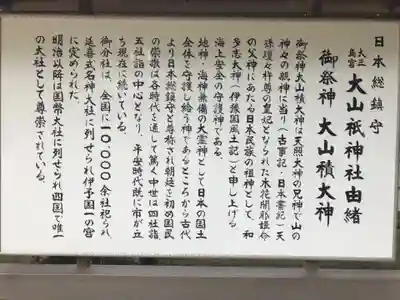 日本総鎮守
大三島宮 大山祇神社由緒
御祭神 大山積大神
御祭神大山積大神は天照大神の兄神で山の
神々の親神に当り(古事記・日本書記)天
孫瓊々杵尊の皇妃となられた木花開耶姫命
の父神にあたる日本民族の祖神として、和
多志大神(伊豫国風土記)と申し上げる
海上安全の守護神である。
地神・海神兼備の大霊神として日本の国土
全体を守護し給う神であるところから古代
より日本総鎮守と尊称され朝廷を初め国民
の崇拝は各時代を通して篤く中世は四社詣
五社詣の中心となり、平安時代既に市が立
ち現在に続いている。
御分社は、全国に一〇、〇〇〇余社祀られ
延喜式名神大社に列せられ伊予国一の宮
に定められた。
明治以降は国幣大社に列せられ四国で唯一
の大社として尊崇されている。